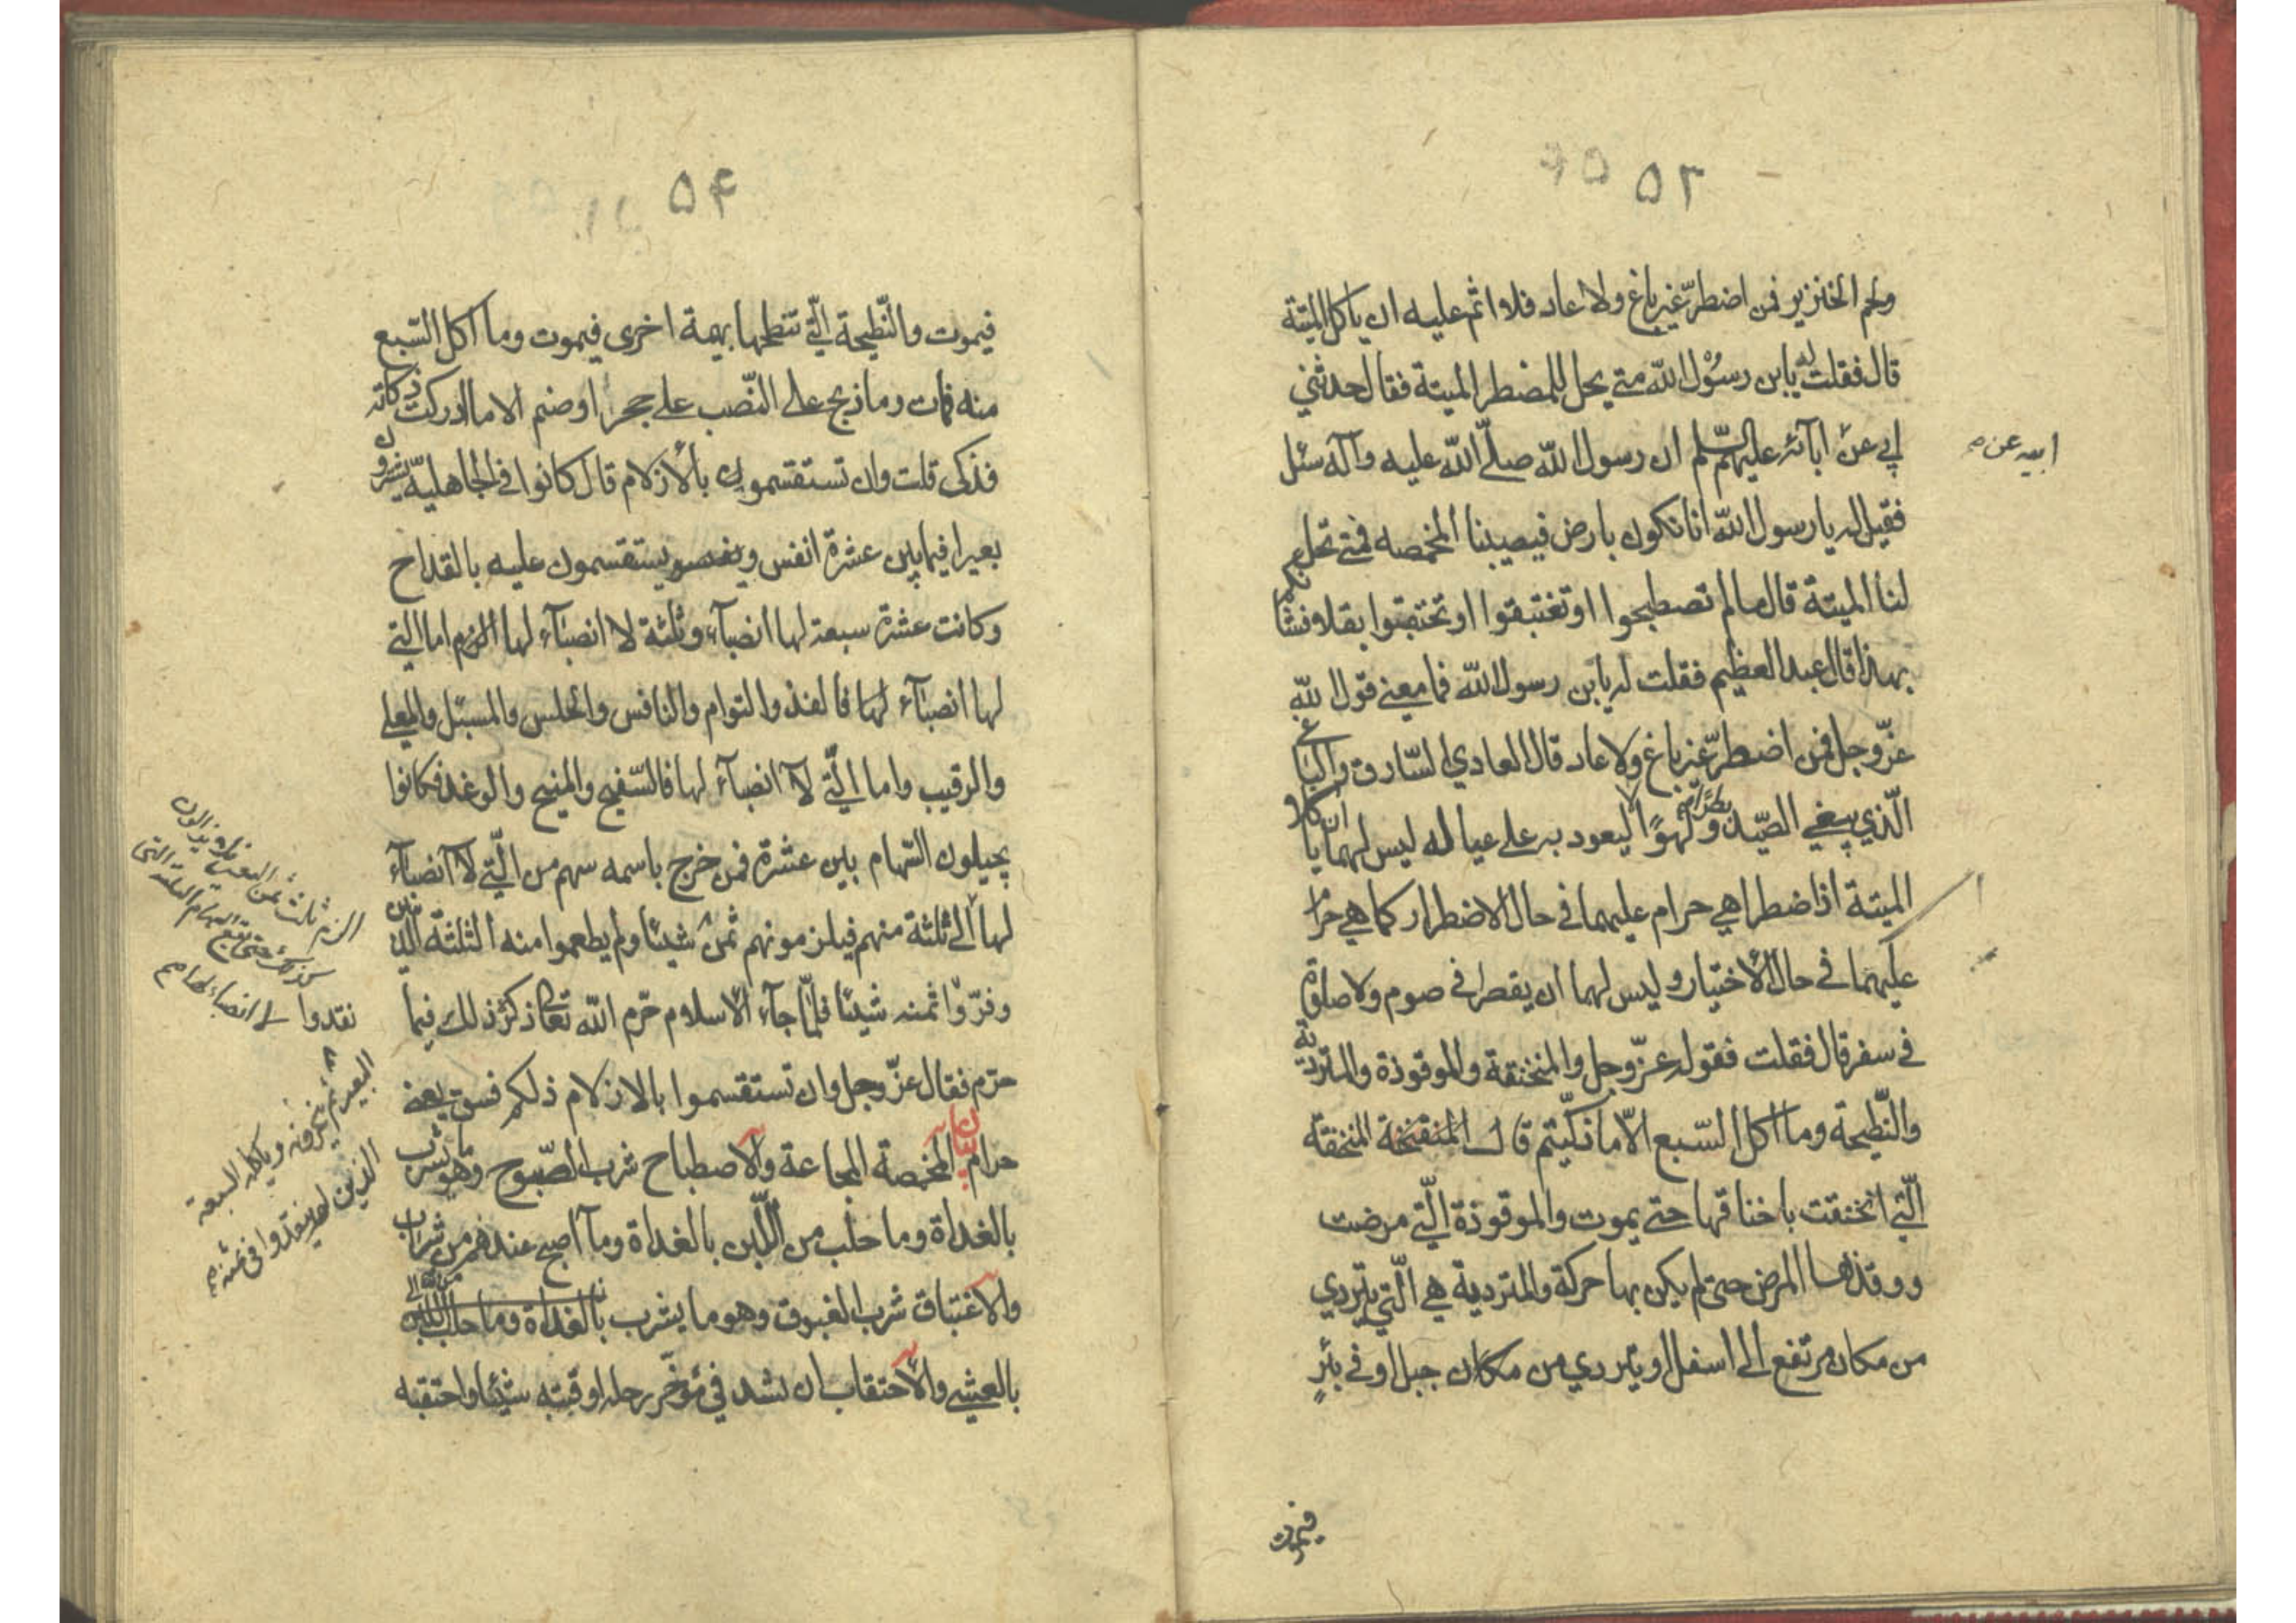 ٥٣
ولحم الخنزير فمن اضطرّ غير باغ ولا عاد فلا اثم عليه ان ياكل الميتة
قال فقلت له يابن رسُول اللّه متى يحل للمضطر الميتة فقال حدثني
ابي عن آبائه عليهم السّلم ان رسول اللّه صلّى اللّه عليه وآله سئل
ابيه عن
فقيل له يا رسول اللّه انا نكون بارض فيصيبنا المخمصه فمتى تحل
لنا الميتة قال ما لم تصطبحوا او تغتبقوا او تحتقبوا بقلا فشانكم
بهذا قال عبد العظيم فقلت له يابن رسول اللّه فما معنى قول اللّه
عزّ وجل فمن اضطرّ غير باغ ولا عاد قال العادي السّارق والباغي
الّذي يبغي الصّيد بطرًا ولهوًا لا ليعود به على عياله ليس لهما ان ياكلا
الميتة اذا اضطرا هي حرام عليهما في حال الاضطرار كما هي حرام
عليهما في حال الاختيار وليس لهما ان يقصرا في صوم ولا صلوة
في سفر قال فقلت فقوله عزّ وجل والمنخنقة والموقوذة والمتردية
والنّطيحة وما اكل السّبع الاّ ما ذكّيتم قال المنخنقة
الّتي انخنقت باخناقها حتى يموت والموقوذة الّتي مرضت
ووقذها المرض حتى لم يكن بها حركة والمتردية هي الّتي يتردي
من مكان مرتفع الى اسفل او يتردي من مكان جبل او في بئرٍ
فيموت
٥۴
فيموت والنّطيحة الّتي تنطحها بهيمة اخرى فيموت وما اكل السّبع
منه فمات وما ذبح على النّصب على حجر او صنم الا ما ادركت ذكاته
فذكى قلت وان تستقسموا بالأزلام قال كانوا في الجاهليّة يشترون
بعيرا فيما بين عشرة انفس ويستقسمون عليه بالقداح
وكانت عشرة سبعة لها انصبآء وثلثة لا انصبآء لها اما التي
لها انصبآء فالفذ والتوام والنافس والحلس والمسبل والمعلى
والرقيب واما الّتي لا انصبآء لها فالسّفيح والمنيح والوغد فكانوا
يجيلون السّهام بين عشرة فمن خرج باسمه سهم من الّتي لا انصبآء
لها الى ثلثة منهم فيلزمونهم ثمن شيئا ولم يطعموا منه الثلثة الّذين
وفرّوا ثمنه شيئًا فلمّا جآء الاسلام حرّم اللّه تعالى ذكره ذلك فيما
حرّم فقال عزّ وجل وان تستقسموا بالازلام ذلكم فسق يعني
حرام بيان المخمصة المجاعة والاصطباح شرب الصّبوح وهو ما يشرب
بالغداة وما حلب من اللّبن بالغداة وما اصبح عندهم من شراب
والاغتباق شرب الغبوق وهو ما يشرب بالغداة وما حلب اللبن
بالعشي والاحتقاب ان يشد في مؤخّر رحله او قبته شيئا واحتقبه
نقدوا
البعير ثم ينحرونه وياكله السبعة
الذين لم ينقدوا في ثمنه